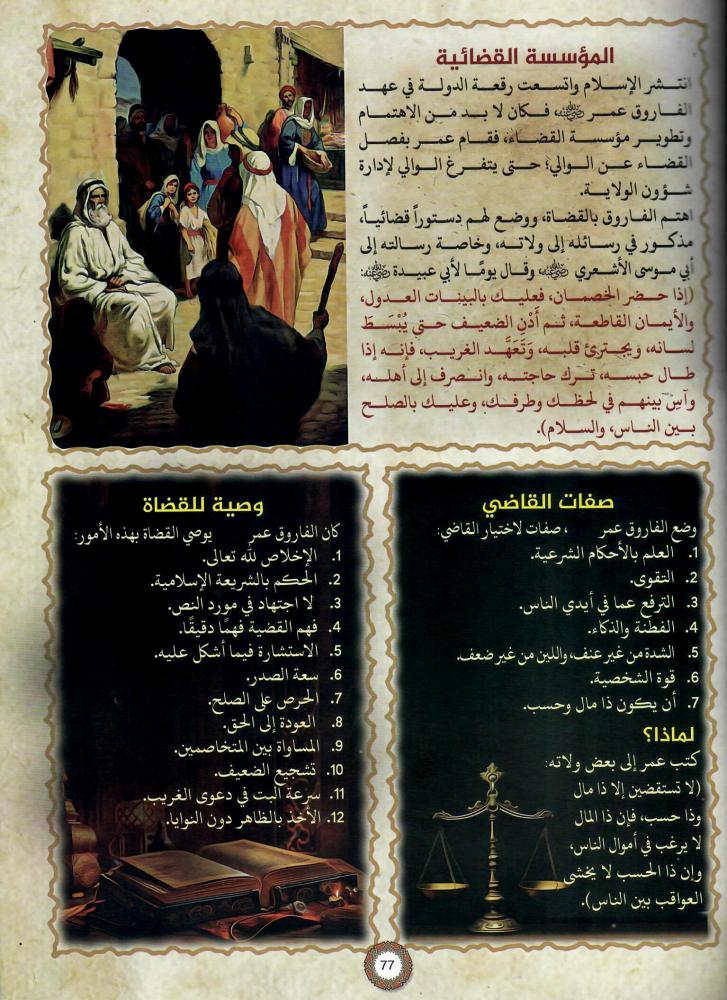 المؤسسة القضائية
انتشر الإسلام واتسعت رقعة الدولة في عهد
الفاروق عمر ﷺ فكان لا بد من الاهتمام
وتطوير مؤسسة القضاء، فقام عمر بفصل
القضاء عن الوالي؛ حتى يتفرغ الوالي لإدارة
شؤون الولاية.
اهتم الفاروق بالقضاة، ووضع لهم دستوراً قضائياً،
مذكور في رسائله إلى ولاته، وخاصة رسالته إلى
أبي موسى الأشعري ﷺ، وقال يومًا لأبي عبيدة ﷺ:
(إذا حضر الخصمان، فعليك بالبينات العدول،
والأيمان القاطعة، ثم أَدْنِ الضعيف حتى يُبْسَطَ
لسانه، ويجترئ قلبه، وَتَعَهَّد الغريب، فإنه إذا
طال حبسه، ترك حاجته، وانصرف إلى أهله،
وآسِ بينهم في لحظك وطرفك، وعليك بالصلح
بين الناس، والسلام).
صفات القاضي
وضع الفاروق عمر ، صفات لاختيار القاضي:
1. العلم بالأحكام الشرعية.
2. التقوى.
3. الترفع عما في أيدي الناس.
4. الفطنة والذكاء.
5. الشدة من غير عنف، واللين من غير ضعف.
6. قوة الشخصية.
7. أن يكون ذا مال وحسب.
لماذا؟
كتب عمر إلى بعض ولاته:
(لا تستقضين إلا ذا مال
وذا حسب، فإن ذا المال
لا يرغب في أموال الناس،
وإن ذا الحسب لا يخشى
العواقب بين الناس).
وصية للقضاة
كان الفاروق عمر يوصي القضاة بهذه الأمور:
1. الإخلاص لله تعالى.
2. الحكم بالشريعة الإسلامية.
3. لا اجتهاد في مورد النص.
4. فهم القضية فهمًا دقيقًا.
5. الاستشارة فيما أشكل عليه.
6. سعة الصدر.
7. الحرص على الصلح.
8. العودة إلى الحق.
9. المساواة بين المتخاصمين.
10. تشجيع الضعيف.
11. سرعة البت في دعوى الغريب.
12. الأخذ بالظاهر دون النوايا.
77